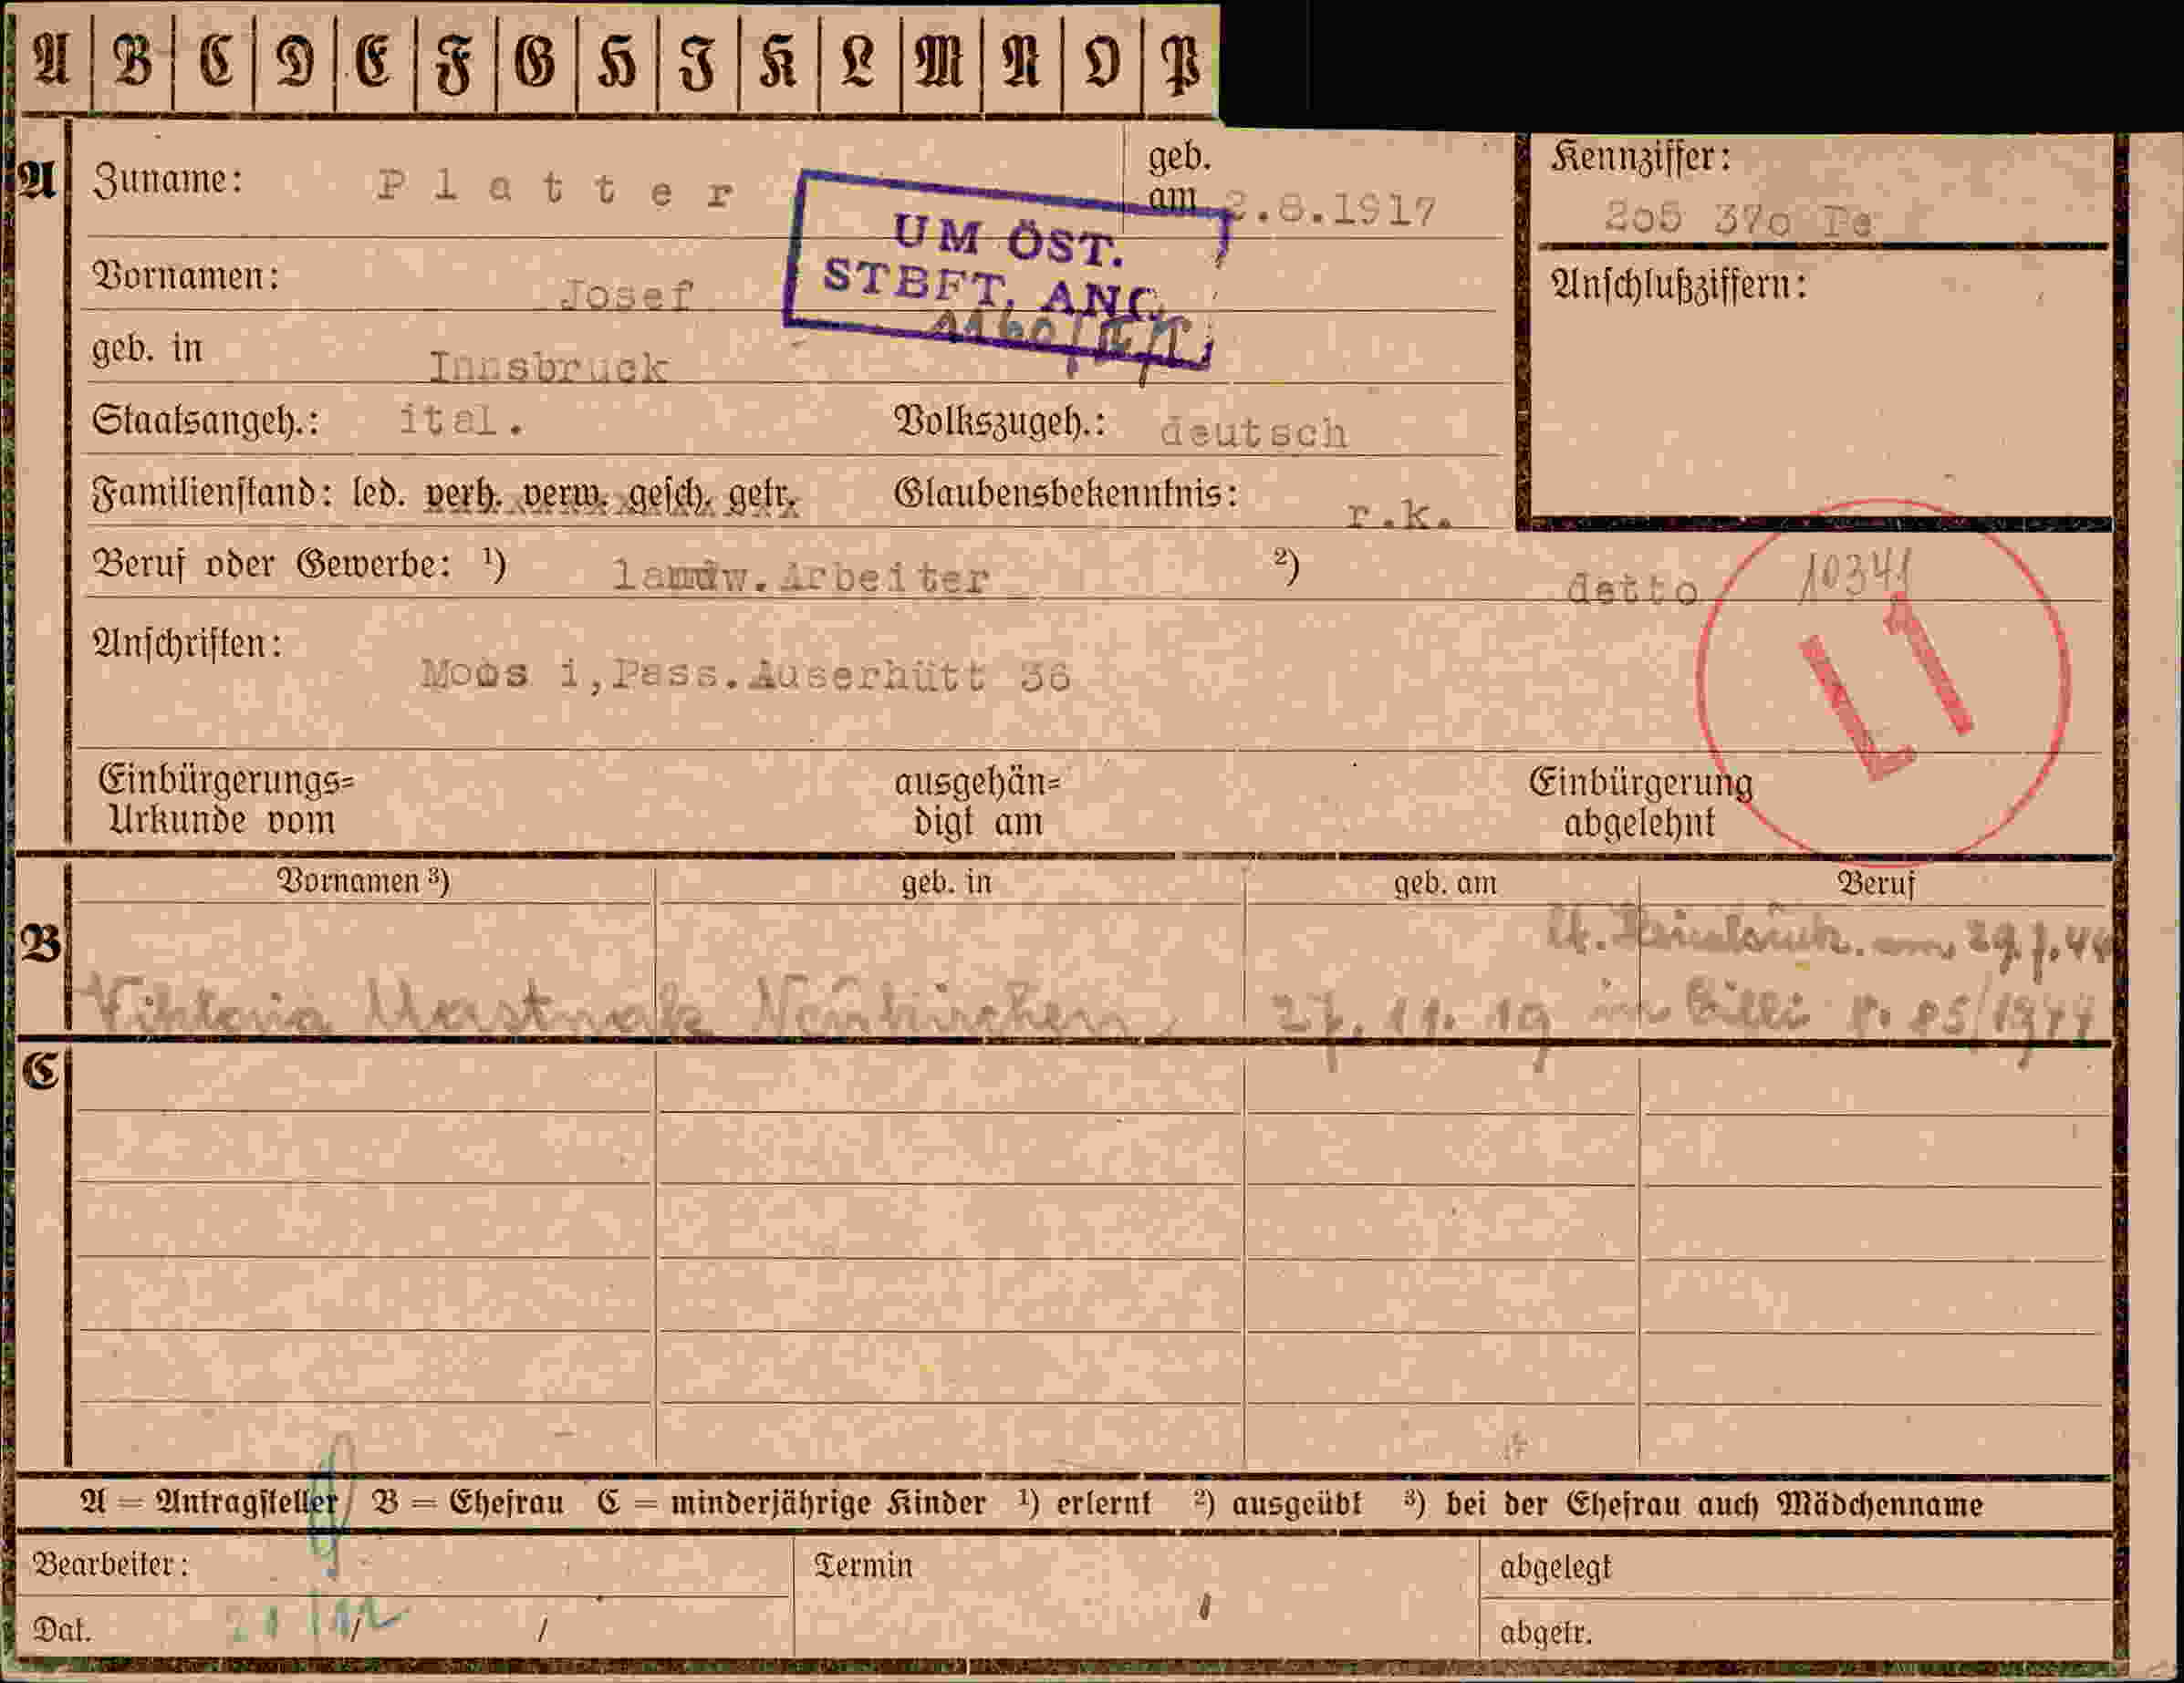 A B C D E F G H I K L M N O P
A Zuname: Platter geb. am 2.8.1917
Kennziffer: 205 370 Pe
UM ÖST. STBFT. ANG.
Vornamen: Josef
Anschlußziffern:
geb. in Innsbruck
Staatsangeh.: ital. Volkszugeh.: deutsch
Familienstand: led. verh. verw. gesch. getr. Glaubensbekenntnis: r.k.
Beruf oder Gewerbe: ¹) landw.Arbeiter ²) detto 10341
Anschriften: Moos i,Pass.Auserhütt 36
Einbürgerungs= Urkunde vom ausgehän= digt am Einbürgerung abgelehnt
Vornamen ³) geb. in geb. am Beruf
B
am 29.7.44
Viktoria Mastnak Neukirchen 27.11.19 in Cilli 85/1944
C
A = Antragsteller B = Ehefrau C = minderjährige Kinder ¹) erlernt ²) ausgeübt ³) bei der Ehefrau auch Mädchenname
Bearbeiter: Termin abgelegt
Dat. / / abgetr.